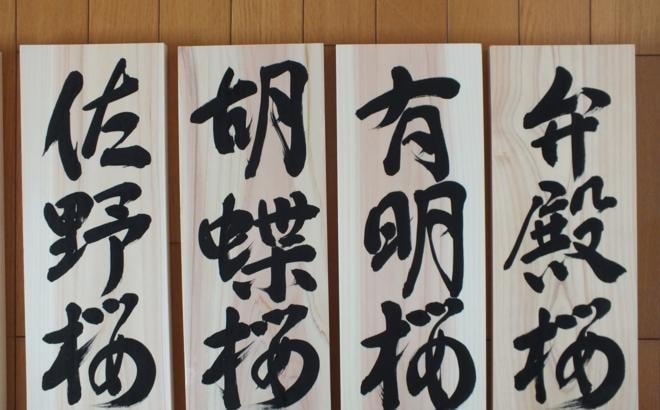 弁殿桜
有明桜
胡蝶桜
佐野桜